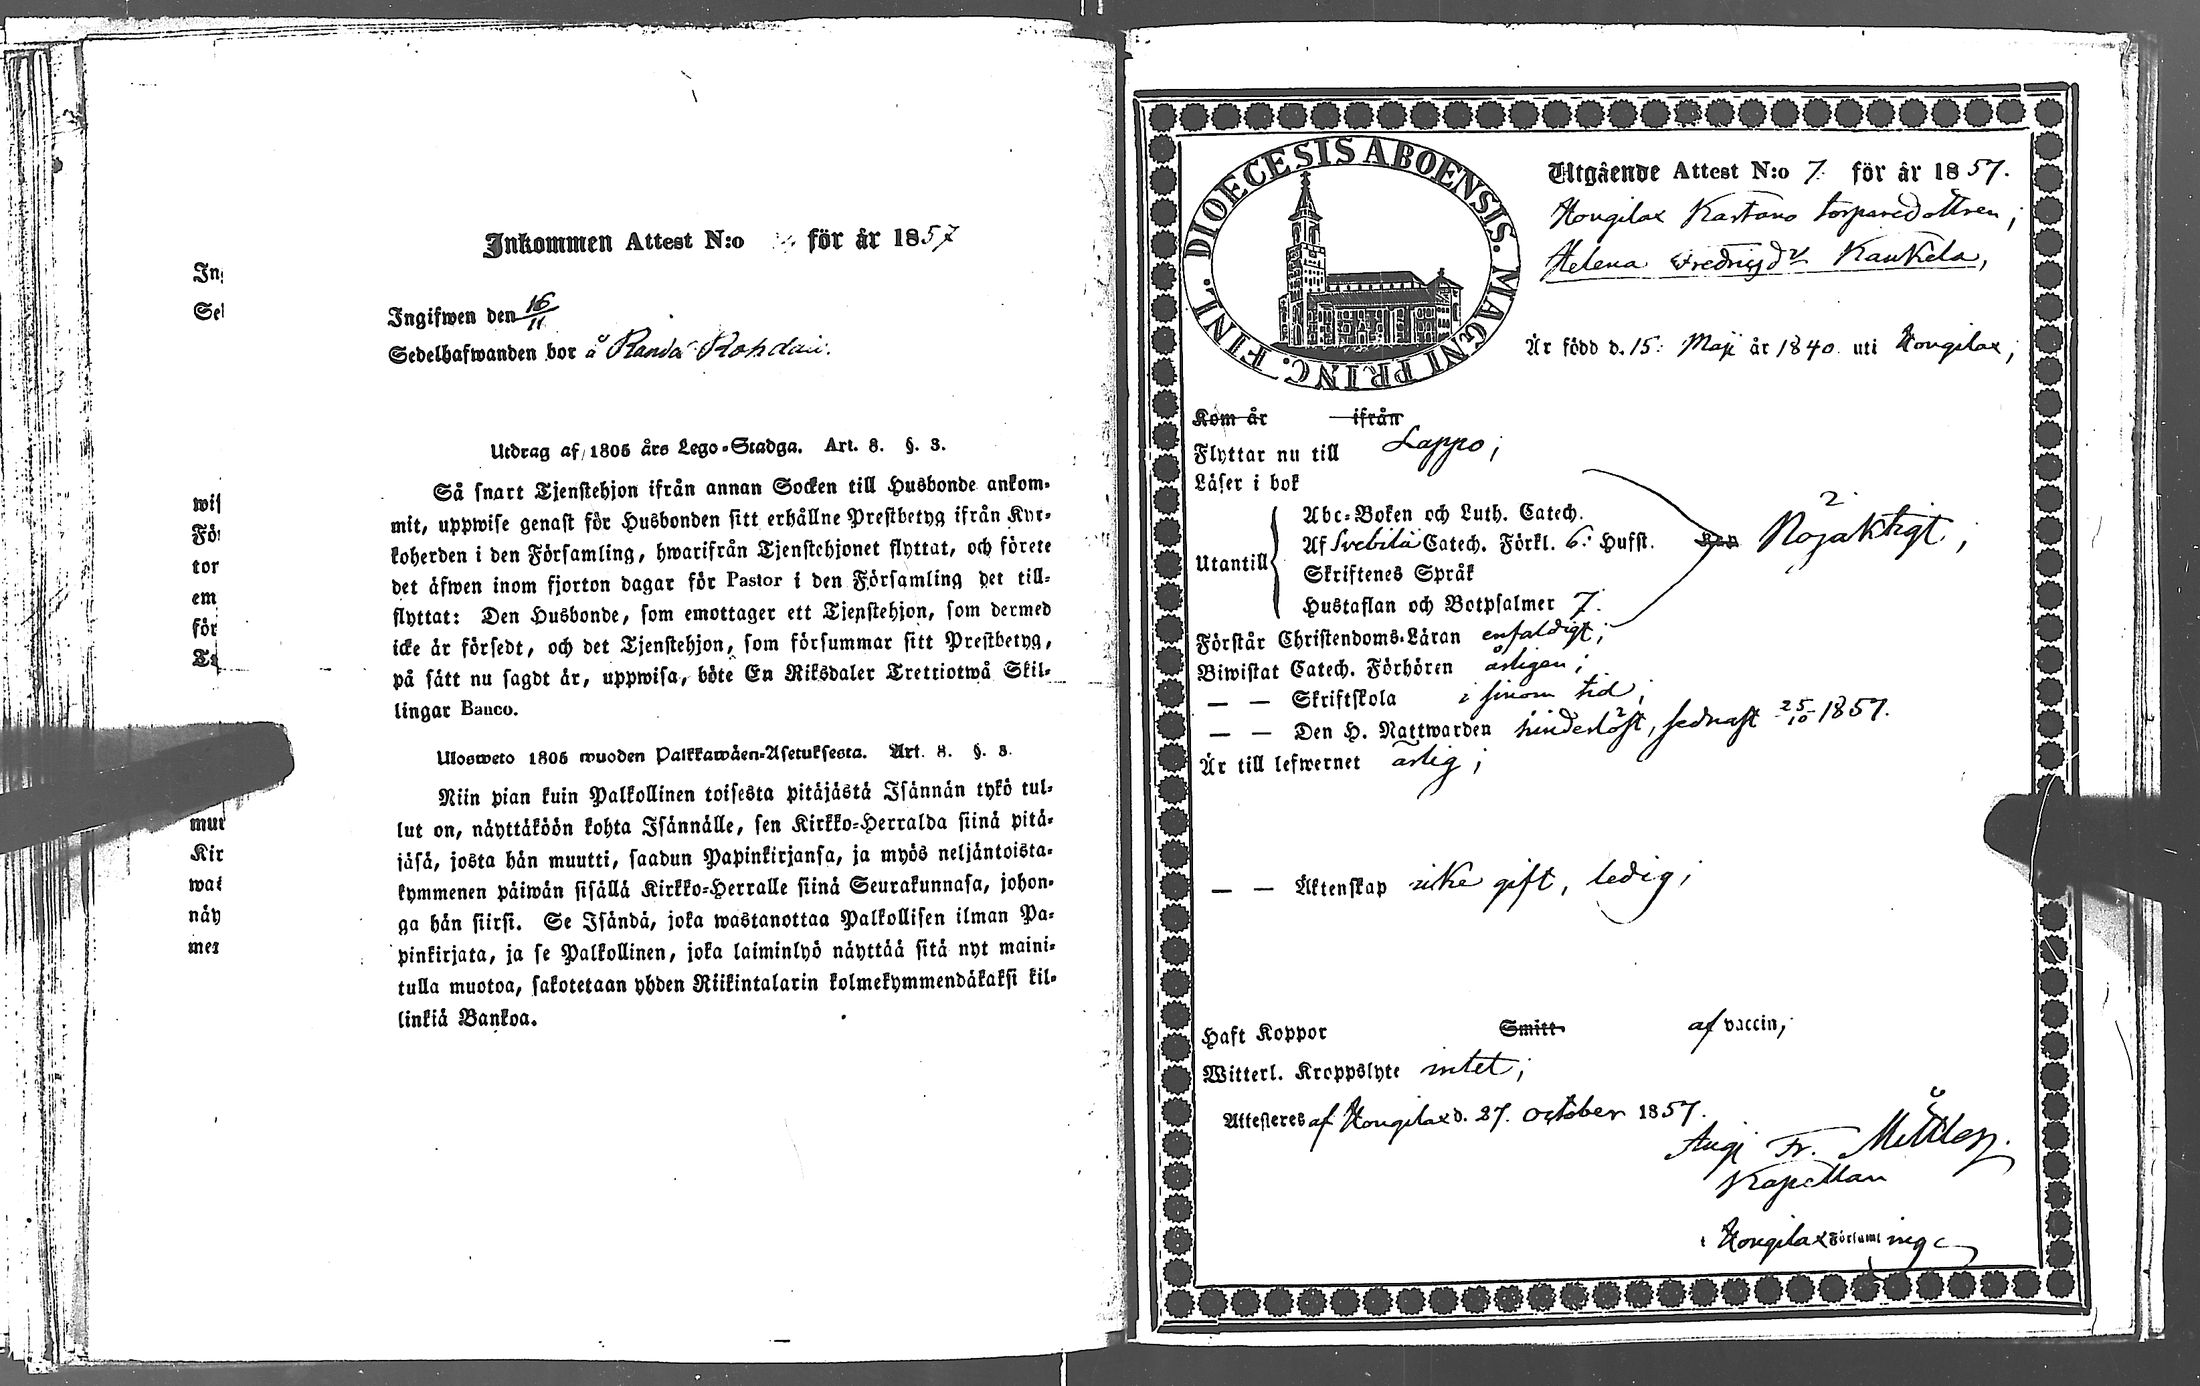 Inkommen Attest N:o för år 1857
Ingifwen den 16/11
Sedelhafwanden bor å Randa Rohdain.
Utdrag af 1805 års Lego-Stadga. Art. 8. §. 3.
Så snart Tjenstehjon ifrån annan Socken till Husbonde ankom-
mit, uppwise genast för Husbonden sitt erhållne Prestbetyg ifrån Kyr-
koherden i den Församling, hwarifrån Tjenstehjonet flyttat, och förete
det äfwen inom fjorton dagar för Pastor i den Församling det till-
flyttat: Den Husbonde, som emottager ett Tjenstehjon, som dermed
icke är försedt, och det Tjenstehjon, som försummar sitt Prestbetyg,
på sätt nu sagdt är, uppwisa, böte En Riksdaler Trettiotwå Skil-
lingar Banco.
Ulosweto 1805 wuoden Palkkawäen-Asetuksesta. Art. 8. §. 3.
Niin pian kuin Palkollinen toisesta pitäjästä Isännän tykö tul-
lut on, näyttäköön kohta Isännälle, sen Kirkko-Herralda siinä pitä-
jäsä, josta hän muutti, saadun Papinkirjansa, ja myös neljäntoista-
kymmenen päiwän sisällä Kirkko-Herralle siinä Seurakunnasa, johon-
ga hän siirsi. Se Isändä, joka wastanottaa Palkollisen ilman Pa-
pinkirjata, ja se Palkollinen, joka laiminlyö näyttää sitä nyt maini-
tulla muotoa, sakotetaan yhden Riikintalarin kolmekymmendäkaksi kil-
linkiä Bankoa.
In
Sel
wis
För
tor
em
för
Tr
mut
Kir
wat
näy
mer
DIOECESIS ABOENSIS. MAGNI PRINC. FINL.
Utgående Attest N:o 7. för år 1857.
Hongilax Kastano torparedottren;
Helena Fredrigsdr Kaukela,
Är född d. 15. Maji år 1840 uti Hongilax;
Kom år ifrån
Flyttar nu till Lappo;
Läser i bok
Utantill
Abc-Boken och Luth. Catech.
Af Svebilii Catech. Förkl. 6. Hufst. Nöjaktigt;
Skriftenes Språk
Hustaflan och Botpsalmer 7.
Förstår Christendoms-Läran enfaldigt;
Biwistat Catech. Förhören årligen;
— — Skriftskola i sinom tid;
— — Den H. Nattwarden hinderlöst, sednast 25/10 1857.
Är till lefwernet ärlig;
— — Äktenskap icke gift, ledig;
Haft Koppor Smitt- af vaccin;
Witterl. Kroppslyte intet;
Attesteres af Hongilax d. 27. october 1857.
Kapellan
i Hongilax Församling